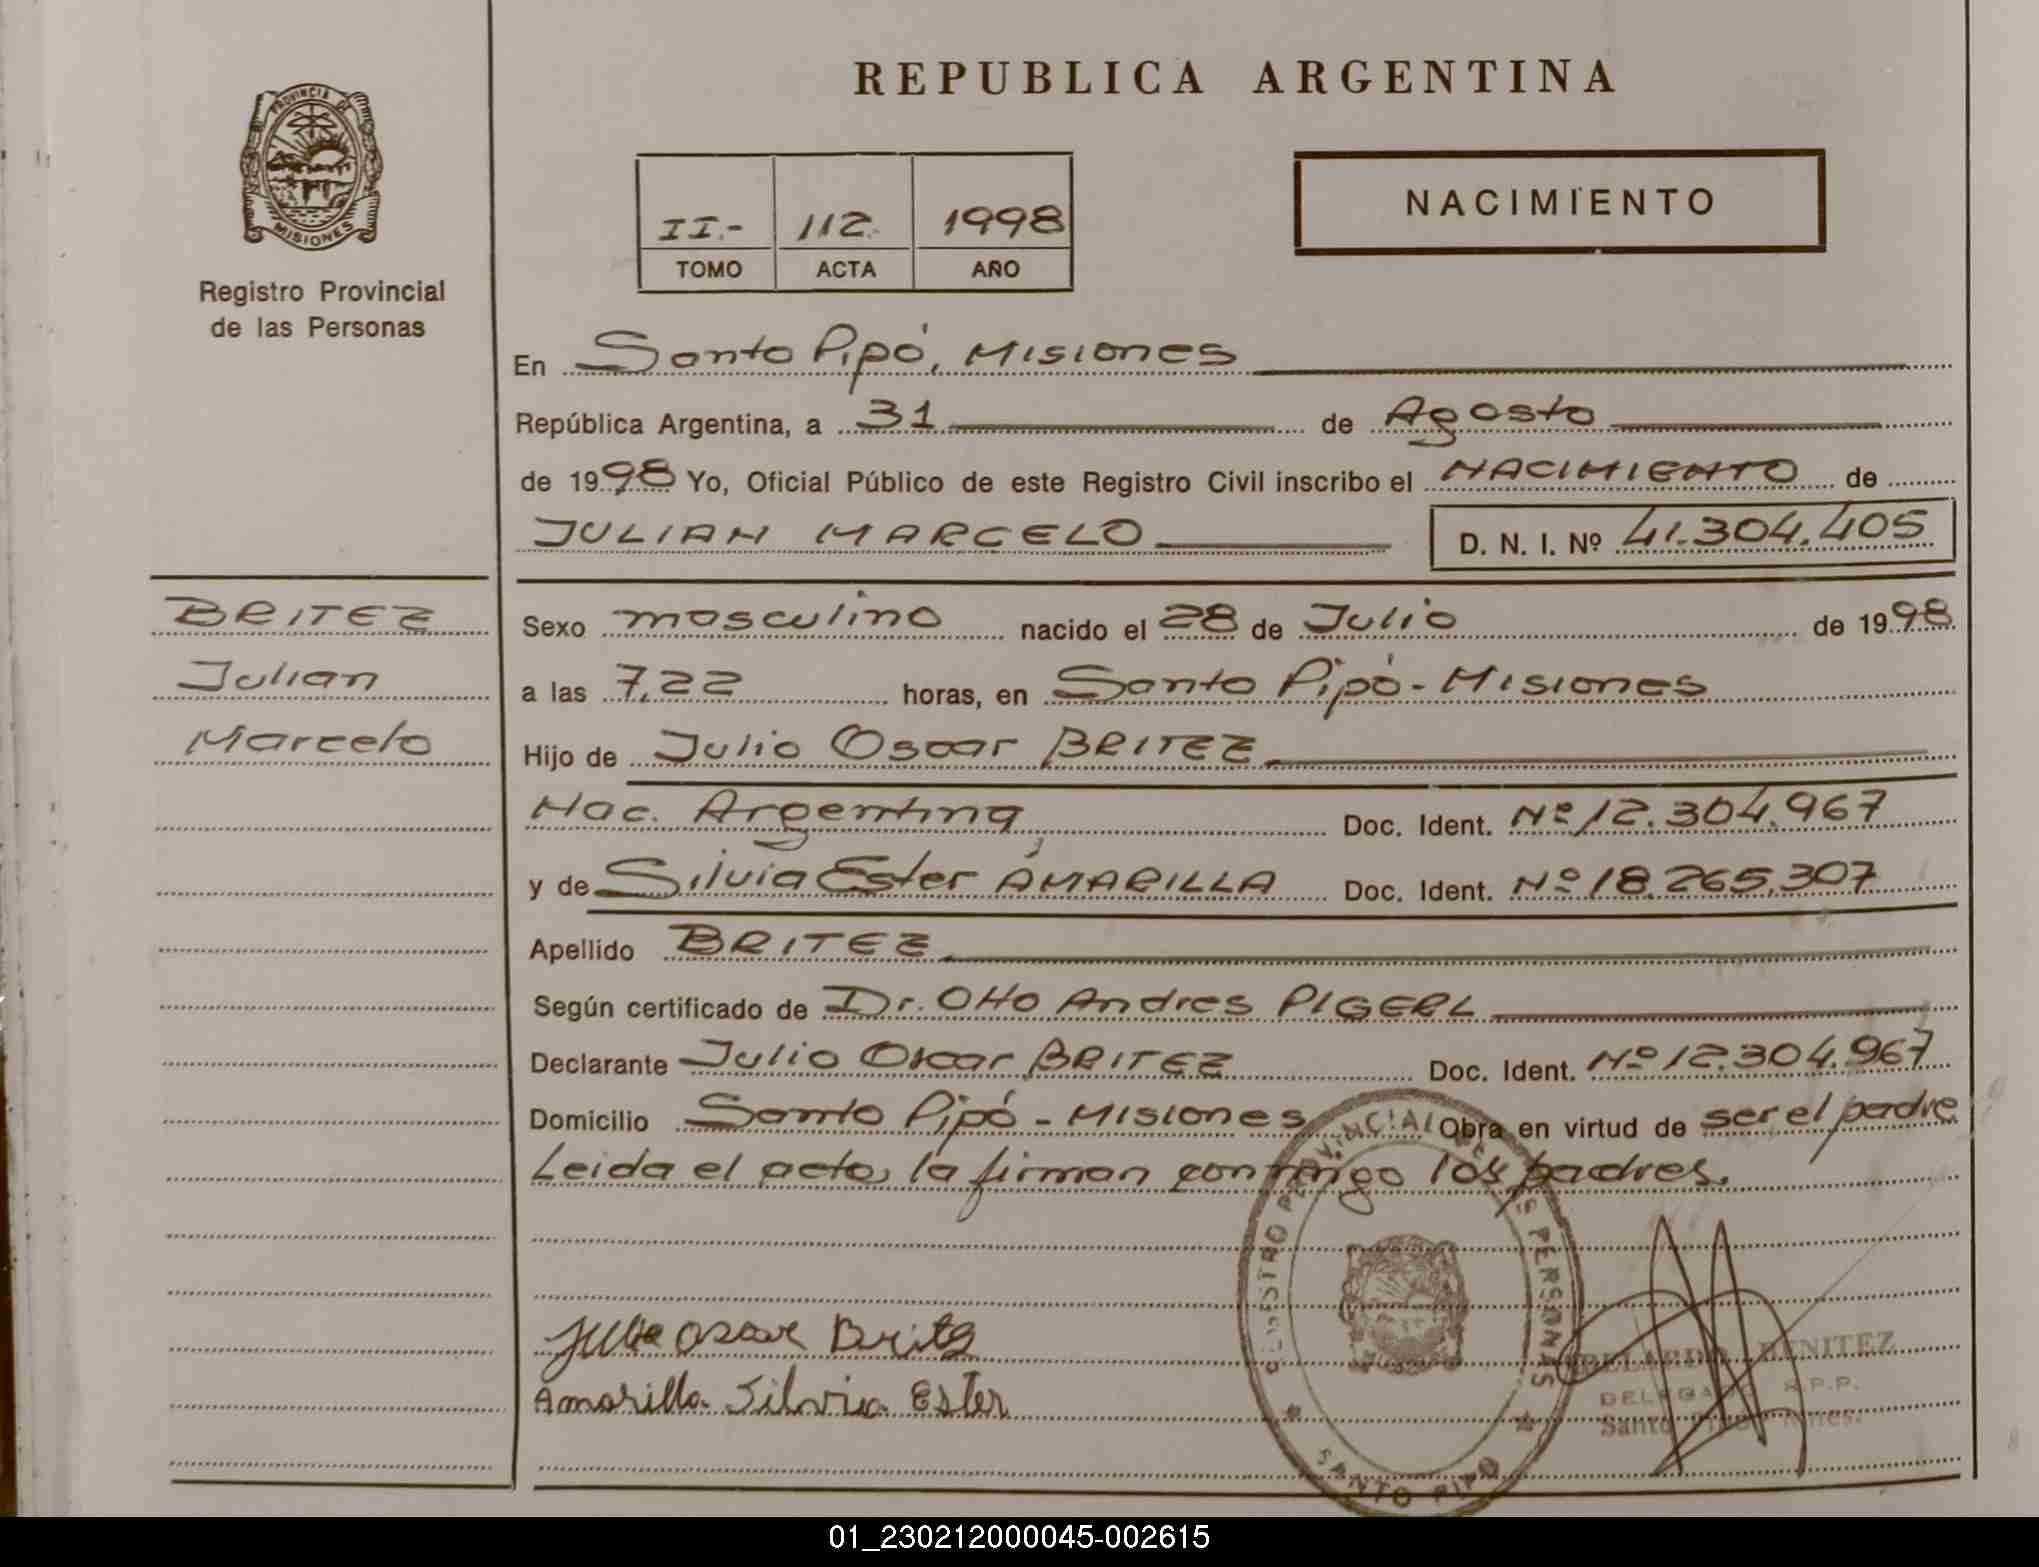 REPUBLICA ARGENTINA
PROVINCIA DE
MISIONES
Registro Provincial
de las Personas
II.- 112. 1998
TOMO ACTA AÑO
NACIMIENTO
En Santo Pipó, Misiones
República Argentina, a 31 de Agosto
de 1998 Yo, Oficial Público de este Registro Civil inscribo el NACIMIENTO de
JULIAN MARCELO D. N. I. Nº 41.304.405
BRITEZ
Julian
Marcelo
Sexo masculino nacido el 28 de Julio de 1998
a las 7,22 horas, en Santo Pipó - Misiones
Hijo de Julio Oscar BRITEZ
Nac. Argentina, Doc. Ident. Nº 12.304.967
y de Silvia Ester AMARILLA Doc. Ident. Nº 18.265.307
Apellido BRITEZ
Según certificado de Dr. Otto Andres PIGERL
Declarante Julio Oscar BRITEZ Doc. Ident. Nº 12.304.967
Domicilio Santo Pipó - Misiones Obra en virtud de ser el padre
Leida el acta, la firman conmigo los padres.
REGISTRO PROVINCIAL DE LAS PERSONAS
SANTO PIPO
Julio Oscar Britez
Amarilla Silvia Ester
BENITEZ
DELEGADO R.P.P.
Santo Pipó
01_230212000045-002615